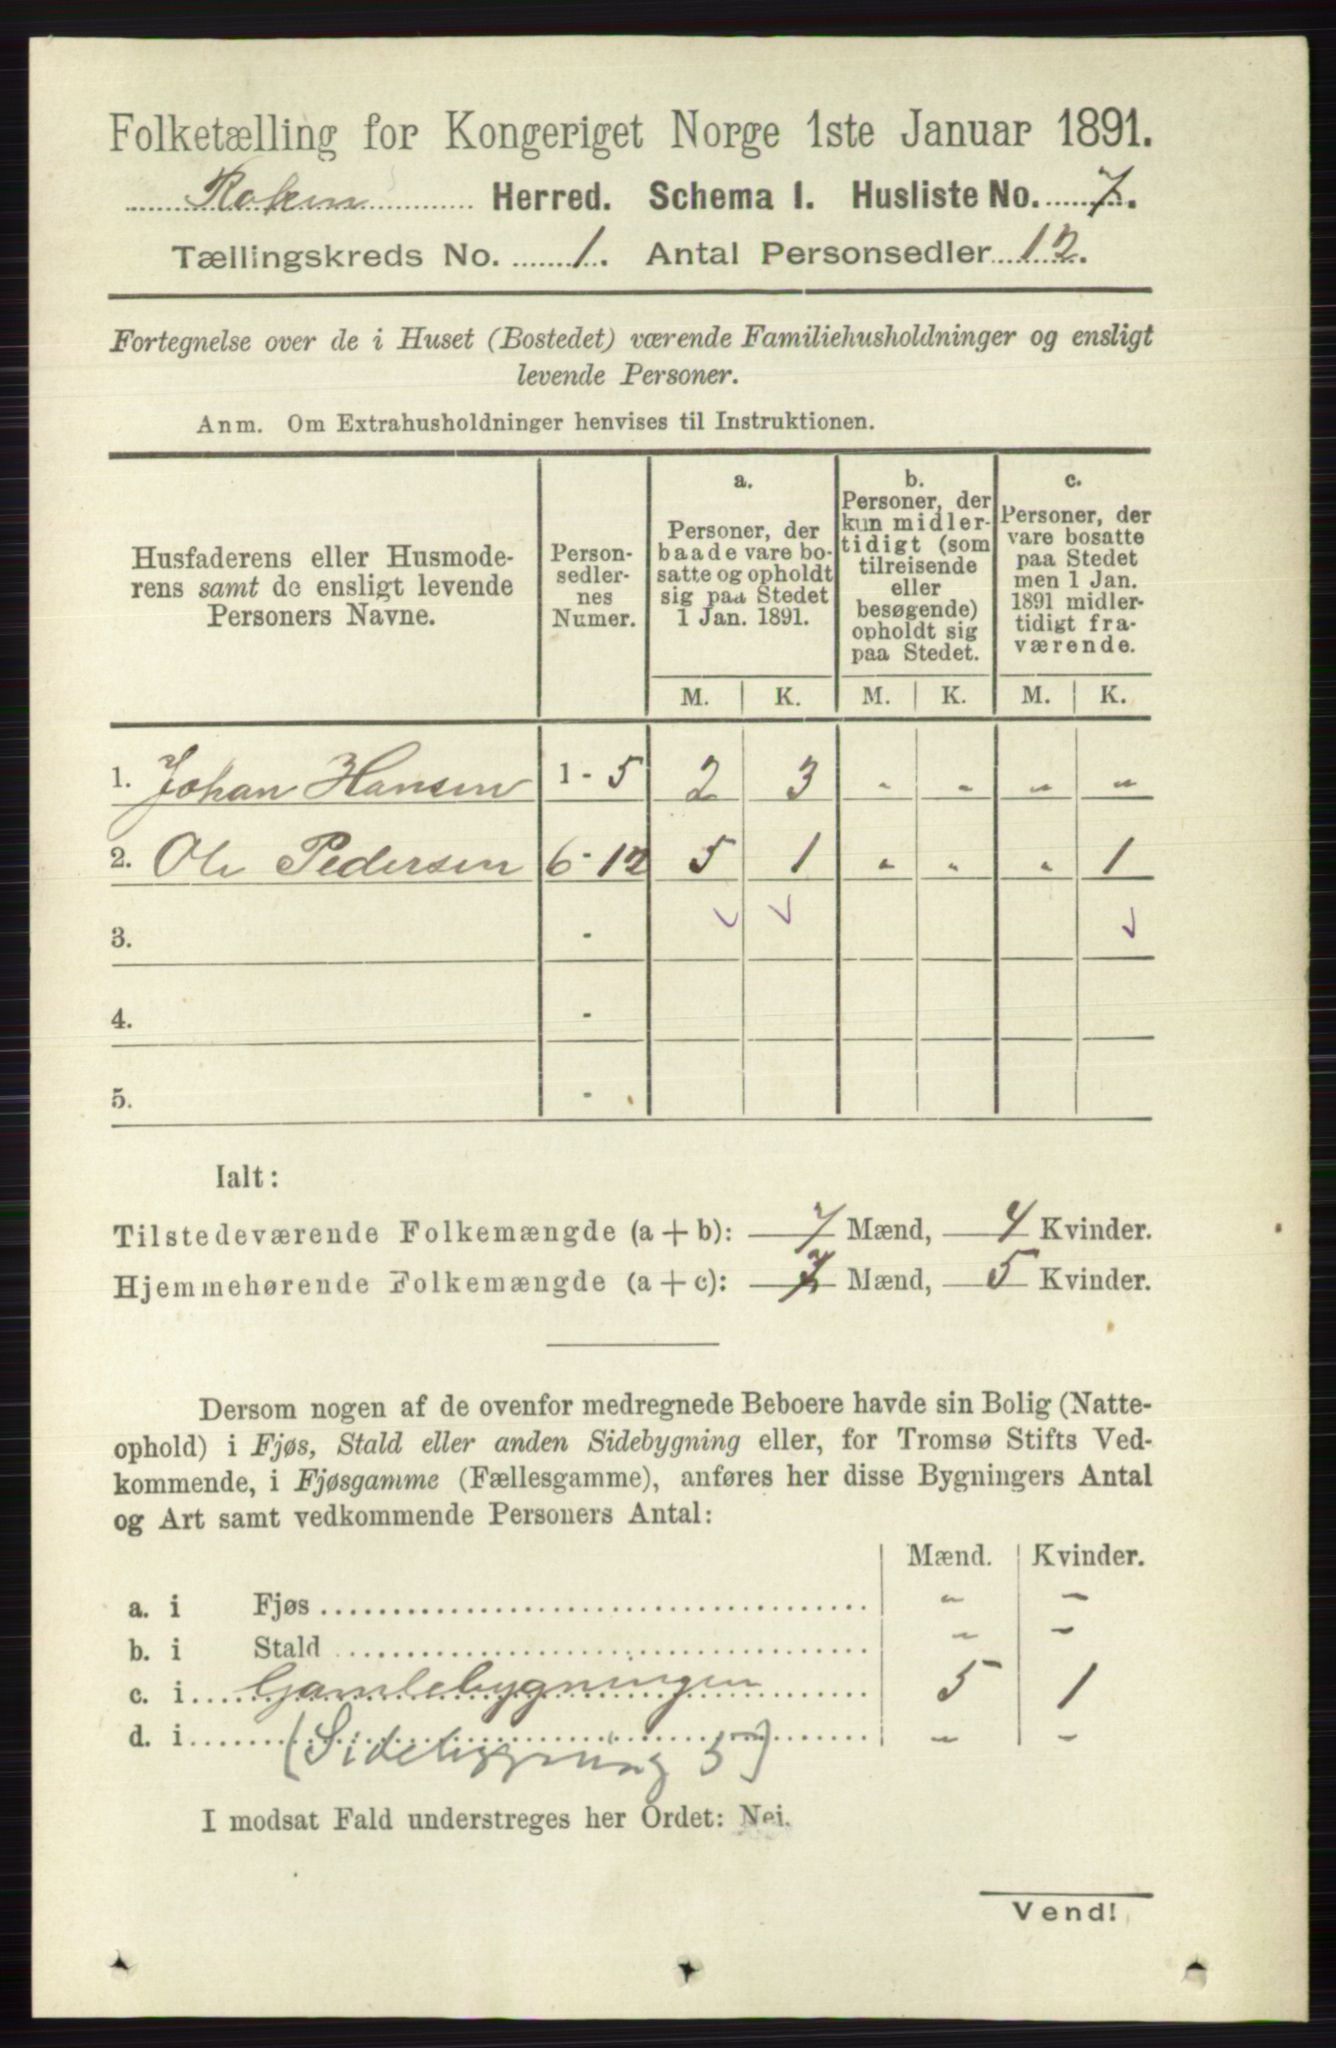 Folketælling for Kongeriget Norge 1ste Januar 1891.
Røken Herred. Schema I. Husliste No. 7.
Tællingskreds No. 1. Antal Personsedler 12.
Fortegnelse over de i Huset (Bostedet) værende Familiehusholdninger og ensligt
levende Personer.
Anm. Om Extrahusholdninger henvises til Instruktionen.
Husfaderens eller Husmode-
rens samt de ensligt levende
Personers Navne.
Person-
sedler-
nes
Numer.
a.
Personer, der
baade vare bo-
satte og opholdt
sig paa Stedet
1 Jan. 1891.
b.
Personer, der
kun midler-
tidigt (som
tilreisende
eller
besøgende)
opholdt sig
paa Stedet.
c.
Personer, der
vare bosatte
paa Stedet
men 1 Jan.
1891 midler-
tidigt fra-
værende.
M. K. M. K. M. K.
1. Johan Hansen 1 - 5 2 3 - - - -
2. Ole Pedersen 6 - 12 5 1 - - - 1
3. -
4. -
5. -
Ialt:
Tilstedeværende Folkemængde (a + b): 7 Mænd, 4 Kvinder.
Hjemmehørende Folkemængde (a + c): 7 Mænd, 5 Kvinder.
Dersom nogen af de ovenfor medregnede Beboere havde sin Bolig (Natte-
ophold) i Fjøs, Stald eller anden Sidebygning eller, for Tromsø Stifts Ved-
kommende, i Fjøsgamme (Fællesgamme), anføres her disse Bygningers Antal
og Art samt vedkommende Personers Antal:
Mænd. Kvinder.
a. i Fjøs - -
b. i Stald - -
c. i Gamlebygningen 5 1
d. i - -
(Sidebygning
I modsat Fald understreges her Ordet: Nei.
Vend!